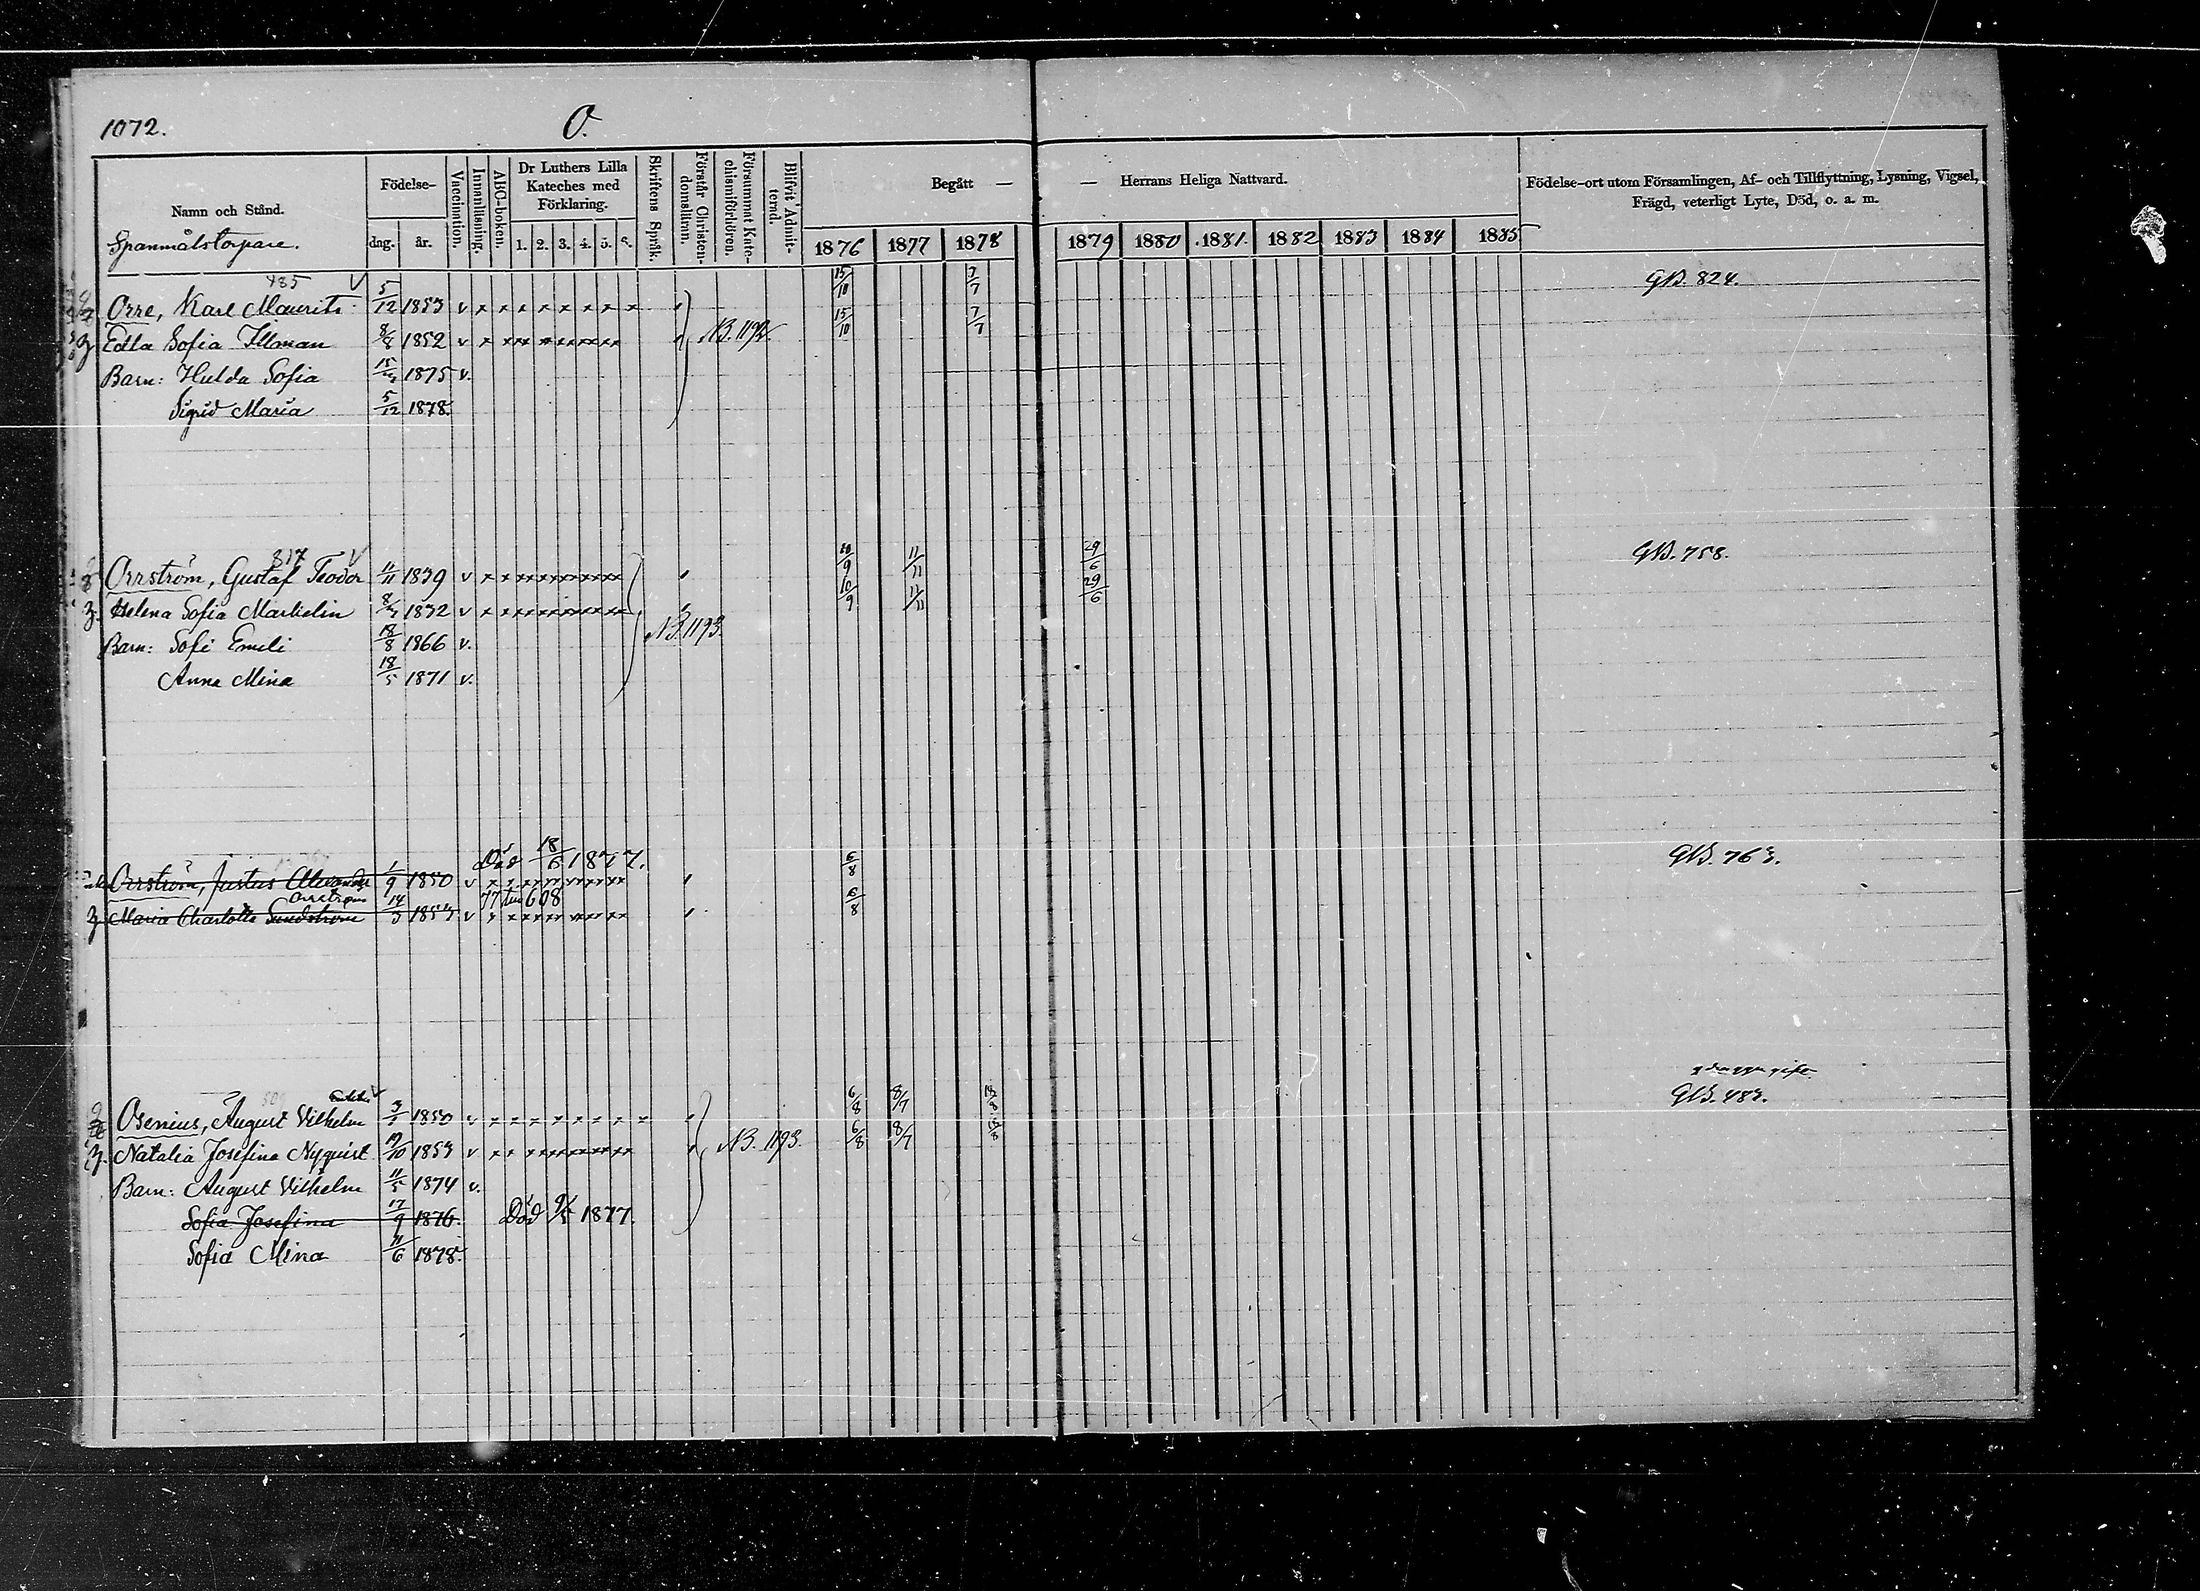 1072. O.
Namn och Stånd. Födelse- Vaccination. Innanläsning. ABC-boken. Dr Luthers Lilla Kateches med Förklaring. Skriftens Språk. Förstår Christendomsläran. Försummat Katechismiförhören. Blifvit Admitterad. Begått — — Herrans Heliga Nattvard. Födelse-ort utom Församlingen, Af- och Tillflyttning, Lysning, Vigsel, Frägd, veterligt Lyte, Död, o. a. m.
Spanmålstorpare. dag. år. 1. 2. 3. 4. 5. 6. 1876 1877 1878 1879 1880 1881. 1882 1883 1884 1885
435 v 15/10 7/7 GB. 824.
Orre, Karl Maurits 5/12 1853 v x x x x x x x x 15/10 7/7
Edla Sofia Illman 8/8 1852 v x x x x x x x x NB. 1192.
Barn: Hulda Sofia 1875 v.
Sigrid Maria 5/12 1878.
317 v 10/9 11/11 29/6 GB. 758.
Orrström, Gustaf Teodor 11/11 1839 v 10/9 11/11 29/6
Helena Sofia Markelin 1832 v
Barn: Sofi Emeli 18/8 1866 v. NB. 1193.
Anna Mina 18/5 1871 v.
Död 18/6 1877. 6/8 GB. 763.
Orrström, Justus Alexander 1/9 1850 v
Orrström 77 till 608 6/8
Maria Charlotta Sundström 14/3 1853 v
v 6/8 8/7 GB. 483.
Osenius, August Vilhelm 1850 v x x x x x x x x
Natalia Josefina Nyqvist 19/10 1853 v NB. 1193. 6/8 8/7
Barn: August Vilhelm 11/5 1874 v.
Sofia Josefina 17/9 1876. Död 1877.
Sofia Mina 11/6 1878.